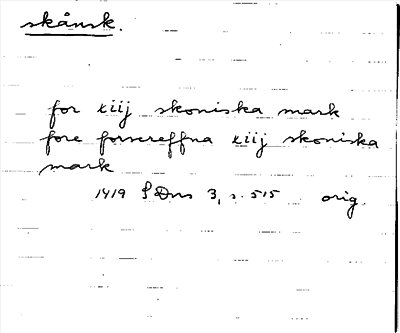 skånsk.
for xiij skoniska mark
fore forscreffna xiij skoniska
mark
1419 SDns 3, s. 515 orig.